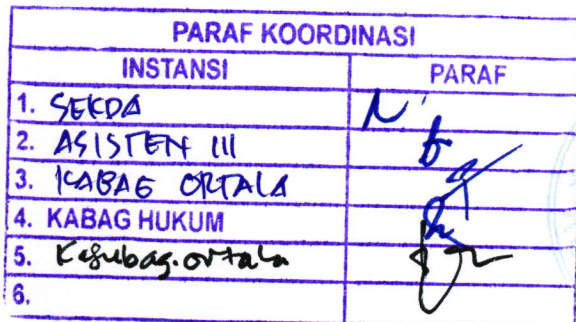 PARAF KOORDINASI
INSTANSI PARAF
1. SEKDA
2. ASISTEN III
3. KABAG ORTALA
4. KABAG HUKUM
5. Kasubag.ortala
6.